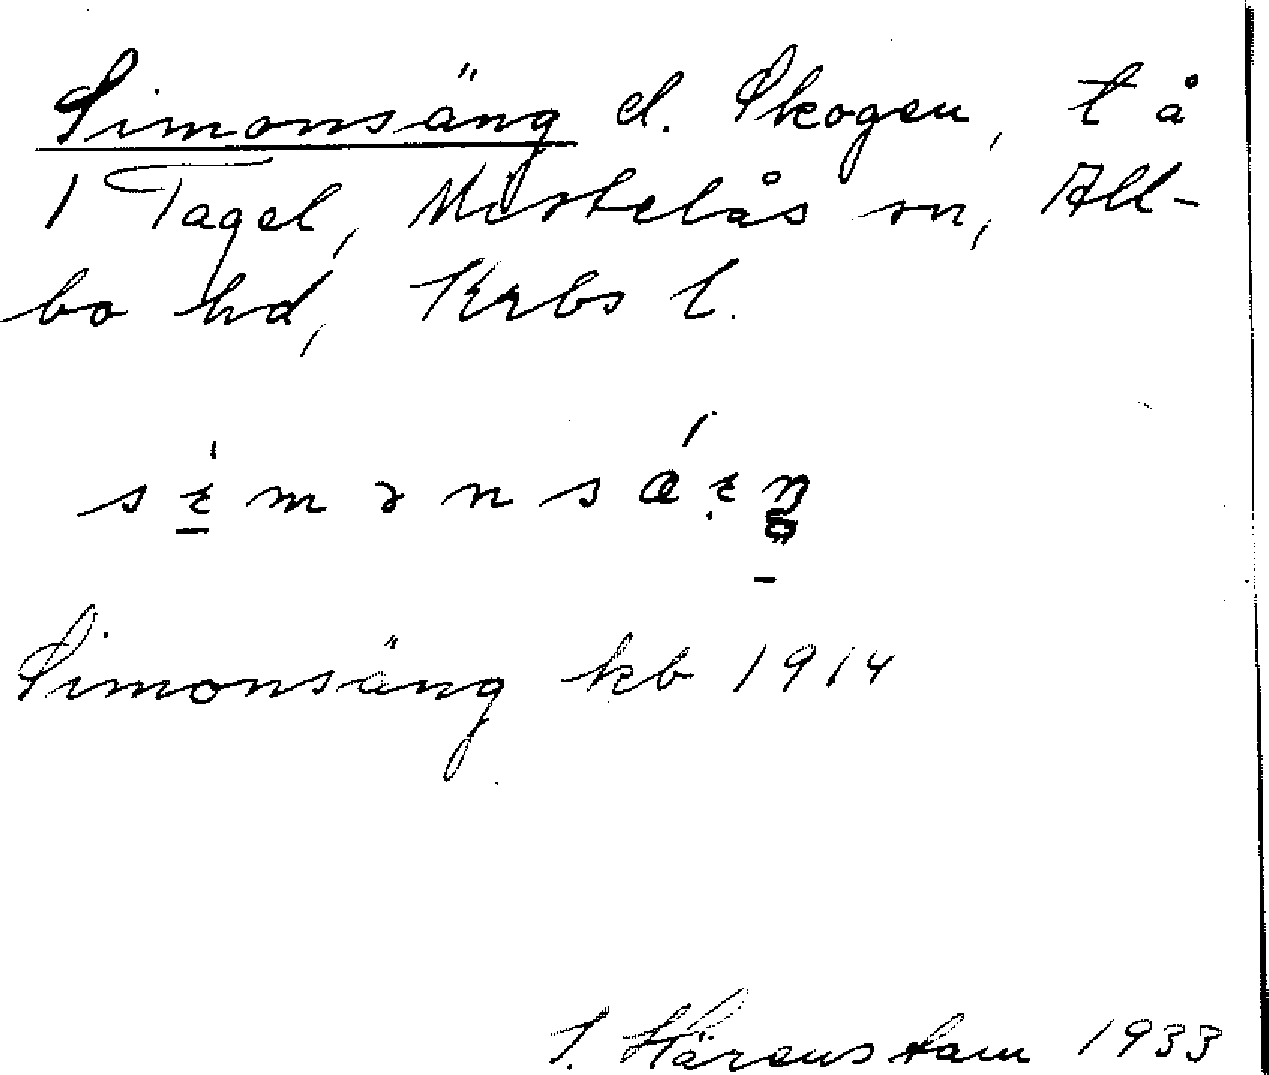 Simonsäng el. Skogen, t å
1 Tagel, Mistelås sn, All-
bo hd, Krbs l.
Simonsäng kb 1914
Härenstam 1933